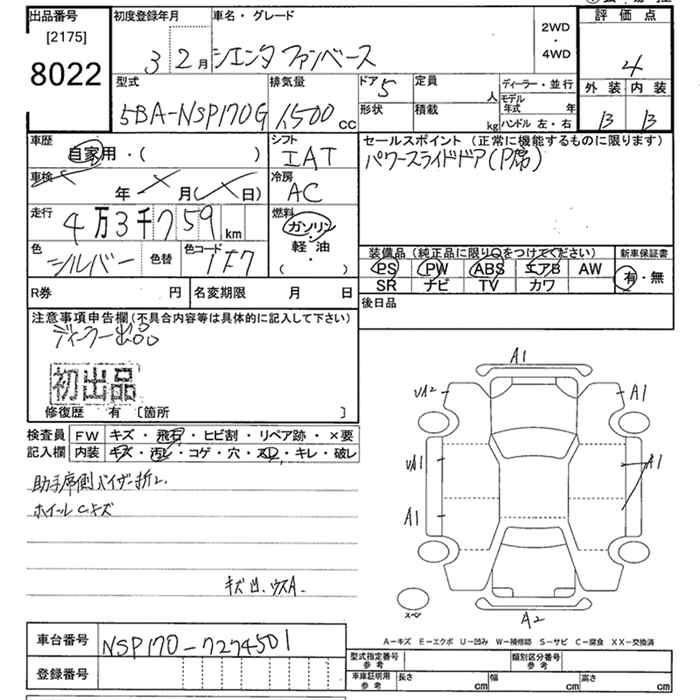 出品番号 初度登録年月 車名・グレード 評価点
[2175] 2WD
8022 3 2月 シエンタ ファンベース ・ 4
4WD
型式 排気量 ドア 5 定員 人 ディーラー・並行 外装 内装
5BA-NSP170G 1,500 cc 形状 積載 kg モデル年式 年 B B
ハンドル 左・右
車歴 シフト セールスポイント (正常に機能するものに限ります)
自家用・( ) IAT パワースライドドア(P席)
車検 年 月( 日) 冷房 AC
走行 4万3千759km 燃料 ガソリン・軽・油 ( )
装備品 (純正品に限り○をつけてください) 新車保証書
色 シルバー 色替 色コード 1F7 PS PW ABS エアB AW 有・無
SR ナビ TV カワ
R券 円 名変期限 月 日 後日品
注意事項申告欄(不具合内容等は具体的に記入して下さい)
ディーラー出品
初出品
修復歴 有 [箇所 ]
検査員 FW キズ・飛石・ヒビ割・リペア跡・×要
記入欄 内装 キズ・汚レ・コゲ・穴・スレ・キレ・破レ
助手席側バイザー折レ
ホイールCキズ
キズ凹ウスA.
A1
A1
A1
A1
A2
スペア
A-キズ E-エクボ U-凹み W-補修跡 S-サビ C-腐食 XX-交換済
車台番号 NSP170-7274501
登録番号
型式指定番号 参考 類別区分番号 参考
車庫証明用 参考 長さ cm 幅 cm 高さ cm